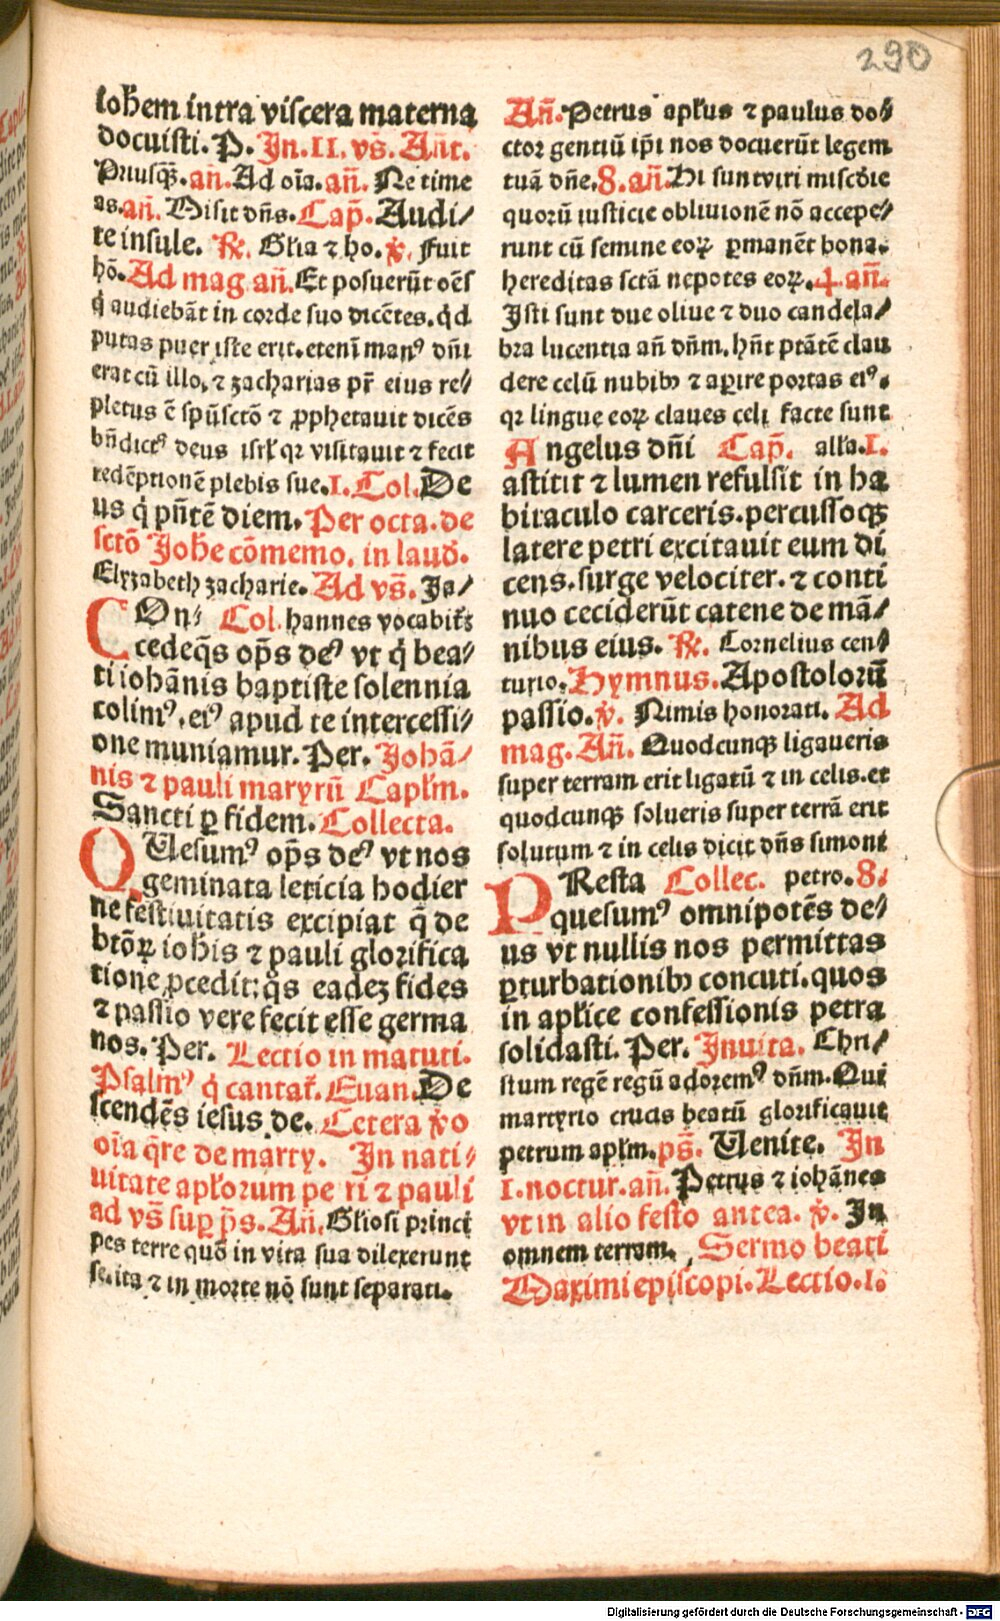 290
iohēm intra viscera materna
docuisti. P. In. II. vs̄. Añt.
Priusq̄ꝫ. añ. Ad oīa. añ. Ne time
as. añ. Misit dn̄s. Cap̄. Audi/
te insule. ℟. Gl̄ia ⁊ ho. ℣. Fuit
hō. Ad mag añ. Et posuerūt oēs
q̇ audiebāt in corde suo dicētes. q̇d
putas puer iste erit. etenī manꝰ dn̄i
erat cū illo, ⁊ zacharias pr̄ eius re/
pletus ē spūsctō ⁊ ꝓphetauit dicēs
bn̄dictꝰ deus isrł qr visitauit ⁊ fecit
redēptionē plebis sue. I. Col. De
us q̇ pn̄tē diem. Per octa. de
sctō Joh̄e cōmemo. in laud̄.
Elyzabeth zacharie. Ad vs̄. Jo/
COn⸗ Col. hannes vocabit̄⸗
cedeq̄s op̄s deꝰ vt q̇ bea⸗
ti iohānis baptiste solennia
colimꝰ, eiꝰ apud te intercessi⸗
one muniamur. Per. Johā/
nis ⁊ pauli martyrū Capłm.
Sancti ꝑ fidem. Collecta.
QUesumꝰ op̄s deꝰ vt nos
geminata leticia hodier
ne festiuitatis excipiat q̄ de
btōꝝ ioh̄is ⁊ pauli glorifica
tione ꝓcedit: q̄s eadeꝫ fides
⁊ passio vere fecit esse germa
nos. Per. Lectio in matuti.
Psalmꝰ q̇ cantat̄. Euan. De
scendēs iesus de. Cetera v̊o
oīa q̄re de marty. In nati⸗
uitate apłorum petri ⁊ pauli
ad vs̄ suꝑ p̄s. Añ. Gl̄iosi princi
pes terre quō in vita sua dilexerunt
se. ita ⁊ in morte nō sunt separati.
Añ. Petrus apłus ⁊ paulus do⸗
ctor gentiū ip̄i nos docuerūt legem
tuā dn̄e. 8. añ. Hi sunt viri misc̄die
quorū iusticie obliuionē nō accepe⸗
runt cū semine eoꝝ ꝑmanēt bona.
hereditas sctā nepotes eoꝝ. 4. añ.
Isti sunt due oliue ⁊ duo candela/
bra lucentia añ dn̄m. hn̄t ptātē clau
dere celū nubibꝫ ⁊ aꝑire portas eiꝰ.
qr lingue eoꝝ claues celi facte sunt
Angelus dn̄i Cap̄. alła. I.
astitit ⁊ lumen refulsit in ha
bitaculo carceris. percussoqꝫ
latere petri excitauit eum di
cens. surge velociter. ⁊ conti
nuo ceciderūt catene de mā/
nibus eius. ℟. Cornelius cen⸗
turio. Hymnus. Apostolorū
passio. ℣. Nimis honorati. Ad
mag. Añ. Quodcunqꝫ ligaueris
super terram erit ligatū ⁊ in celis. et
quodcunqꝫ solueris super terrā erit
solutum ⁊ in celis dicit dn̄s simoni
PResta Collec. petro. 8.
quesumꝰ omnipotēs de⸗
us vt nullis nos permittas
ꝑturbationibꝫ concuti. quos
in apłice confessionis petra
solidasti. Per. Inuita. Chri/
stum regē regū adoremꝰ dn̄m. Qui
martyrio crucis beatū glorificauit
petrum apłm. ps̄. Uenite. In
I. noctur. añ. Petrus ⁊ iohānes
vt in alio festo antea. ℣. In
omnem terram. Sermo beati
Maximi episcopi. Lectio. I.
Digitalisierung gefördert durch die Deutsche Forschungsgemeinschaft - DFG